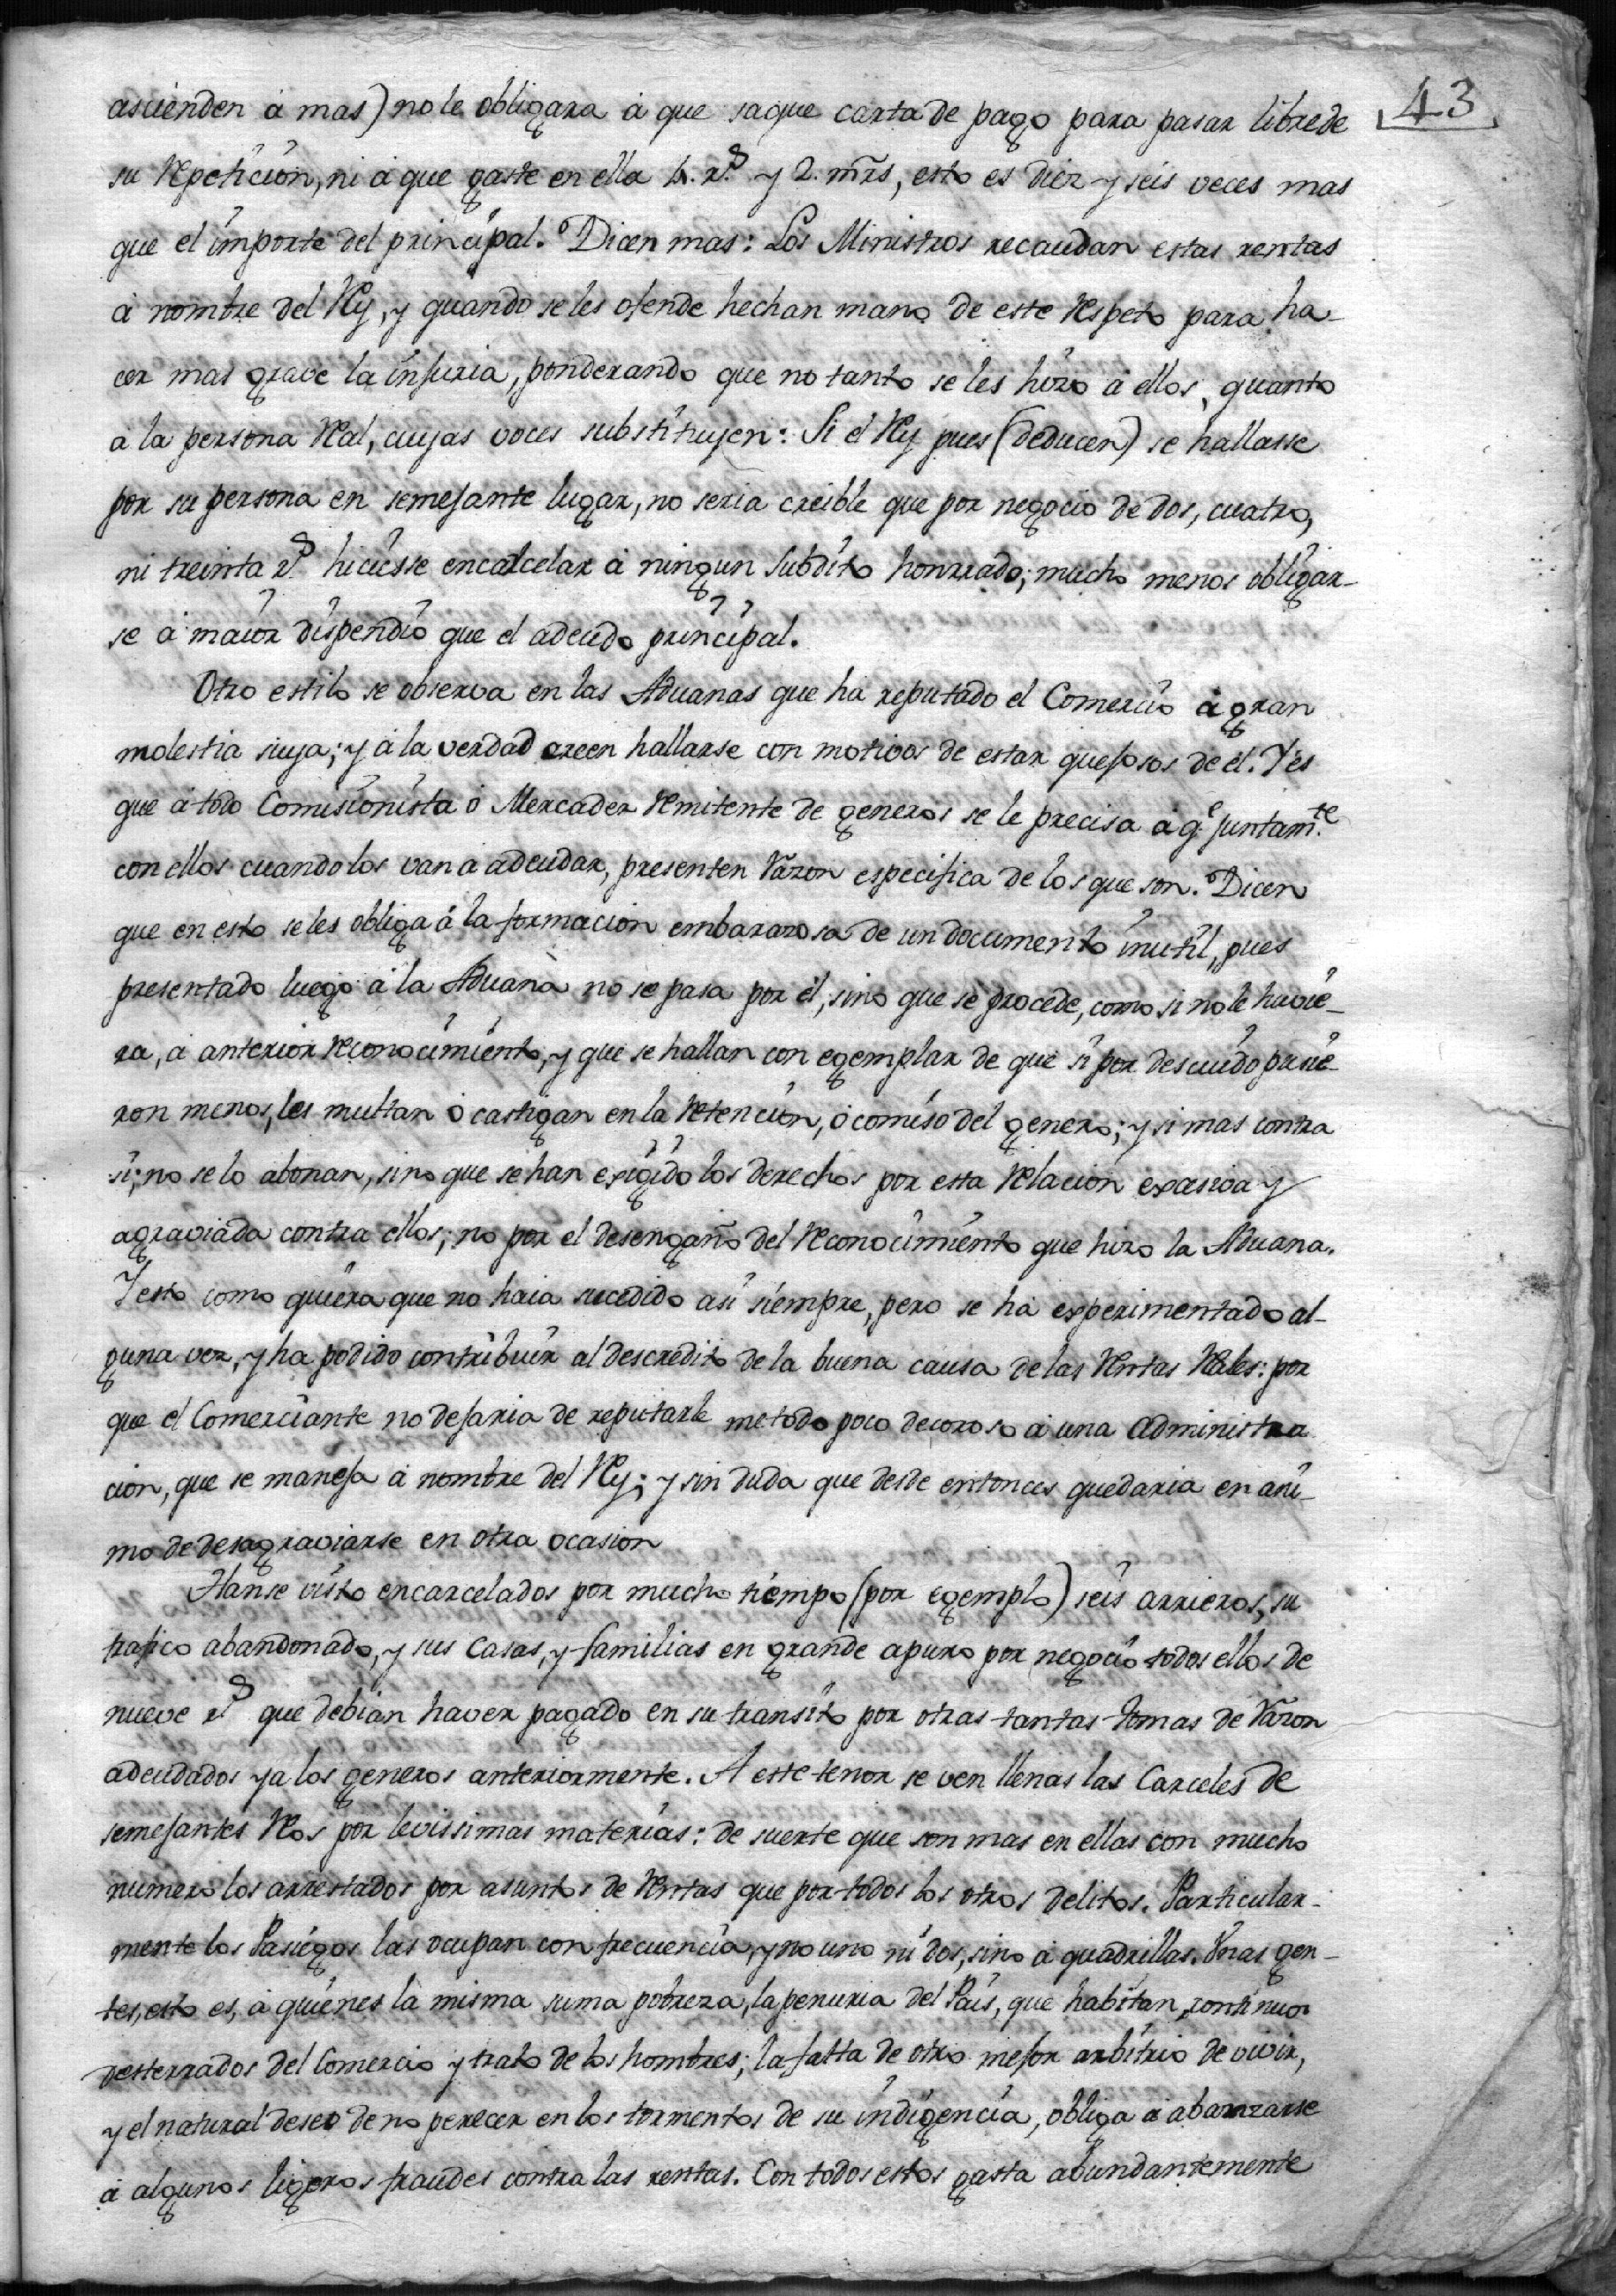 43
ascienden à mas) no le obligara à que saque carta de pago para pasar libre de
su repeticion, ni à que gaste en ella 4. rs. y 2. mrs, esto es diez y seis veces mas
que el importe del principal. Dicen mas: Los Ministros recaudan estas rentas
à nombre del Rey, y quando se les ofende hechan mano de este respeto para ha-
cer mas grave la injuria, ponderando que no tanto se les hizo à ellos, quanto
à la persona Real, cuyas voces substituyen: Si el Rey pues (deducen) se hallasse
por su persona en semejante lugar, no seria creible que por negocio de dos, cuatro,
ni treinta rs. hiciesse encalcelar à ningun subdito honrrado; mucho menos obligar-
se à maior dispendio que el adeudo principal.
Otro estilo se observa en las Aduanas que ha reputado el Comercio à gran
molestia suya; y à la verdad creen hallarse con motivos de estar quejosos de él. Y es
que à todo Comisionista ó Mercader remitente de generos se le precisa à q.e juntam.te
con ellos cuando los van à adeudar, presenten razon especifica de los que son. Dicen
que en esto se les obliga à la formacion embarazosa de un documento inutil, pues
presentado luego à la Aduana no se pasa por él, sino que se procede, como si no le havie-
ra, à anterior reconocimiento, y que se hallan con egemplar de que si por descuido pusie-
ron menos, les multan ò castigan en la retencion, ò comiso del genero; y si mas contra
si; no se lo abonan, sino que se han exigido los derechos por esta relacion excesiva y
agraviada contra ellos; no por el desengaño del reconocimiento que hizo la Aduana.
Y esto como quiera que no haia sucedido asi siempre, pero se ha experimentado al-
guna vez, y ha podido contribuir al descredito de la buena causa de las Rentas Reales: por
que el Comerciante no dejaria de reputarle metodo poco decoroso à una administra
cion, que se maneja à nombre del Rey; y sin duda que desde entonces quedaria en ani-
mo de desagraviarse en otra ocasion
Hanse visto encarcelados por mucho tiempo (por egemplo) seis arrieros, su
trafico abandonado, y sus casas, y familias en grande apuro por negocio todos ellos de
nueve rs que debian haver pagado en su transito por otras tantas tomas de razon
adeudados ya los generos anteriormente. A este tenor se ven llenas las Carceles de
semejantes reos por levissimas materias: de suerte que son mas en ellas con mucho
numero los arrestados por asuntos de rentas que por todos los otros delitos. Particular-
mente los Pasiegos las ocupan con frecuencia, y no uno ni dos, sino à quadrillas. Unas gen-
tes, esto es, à quienes la misma suma pobreza, la penuria del Pais, que habitan, continuo
desterrados del Comercio y trato de los hombres; la falta de otro mejor arbitrio de vivir,
y el natural deseo de no perecer en los tormentos de su indigencia, obliga à abanzarse
à algunos ligeros fraudes contra las rentas. Con todos estos gasta abundantemente